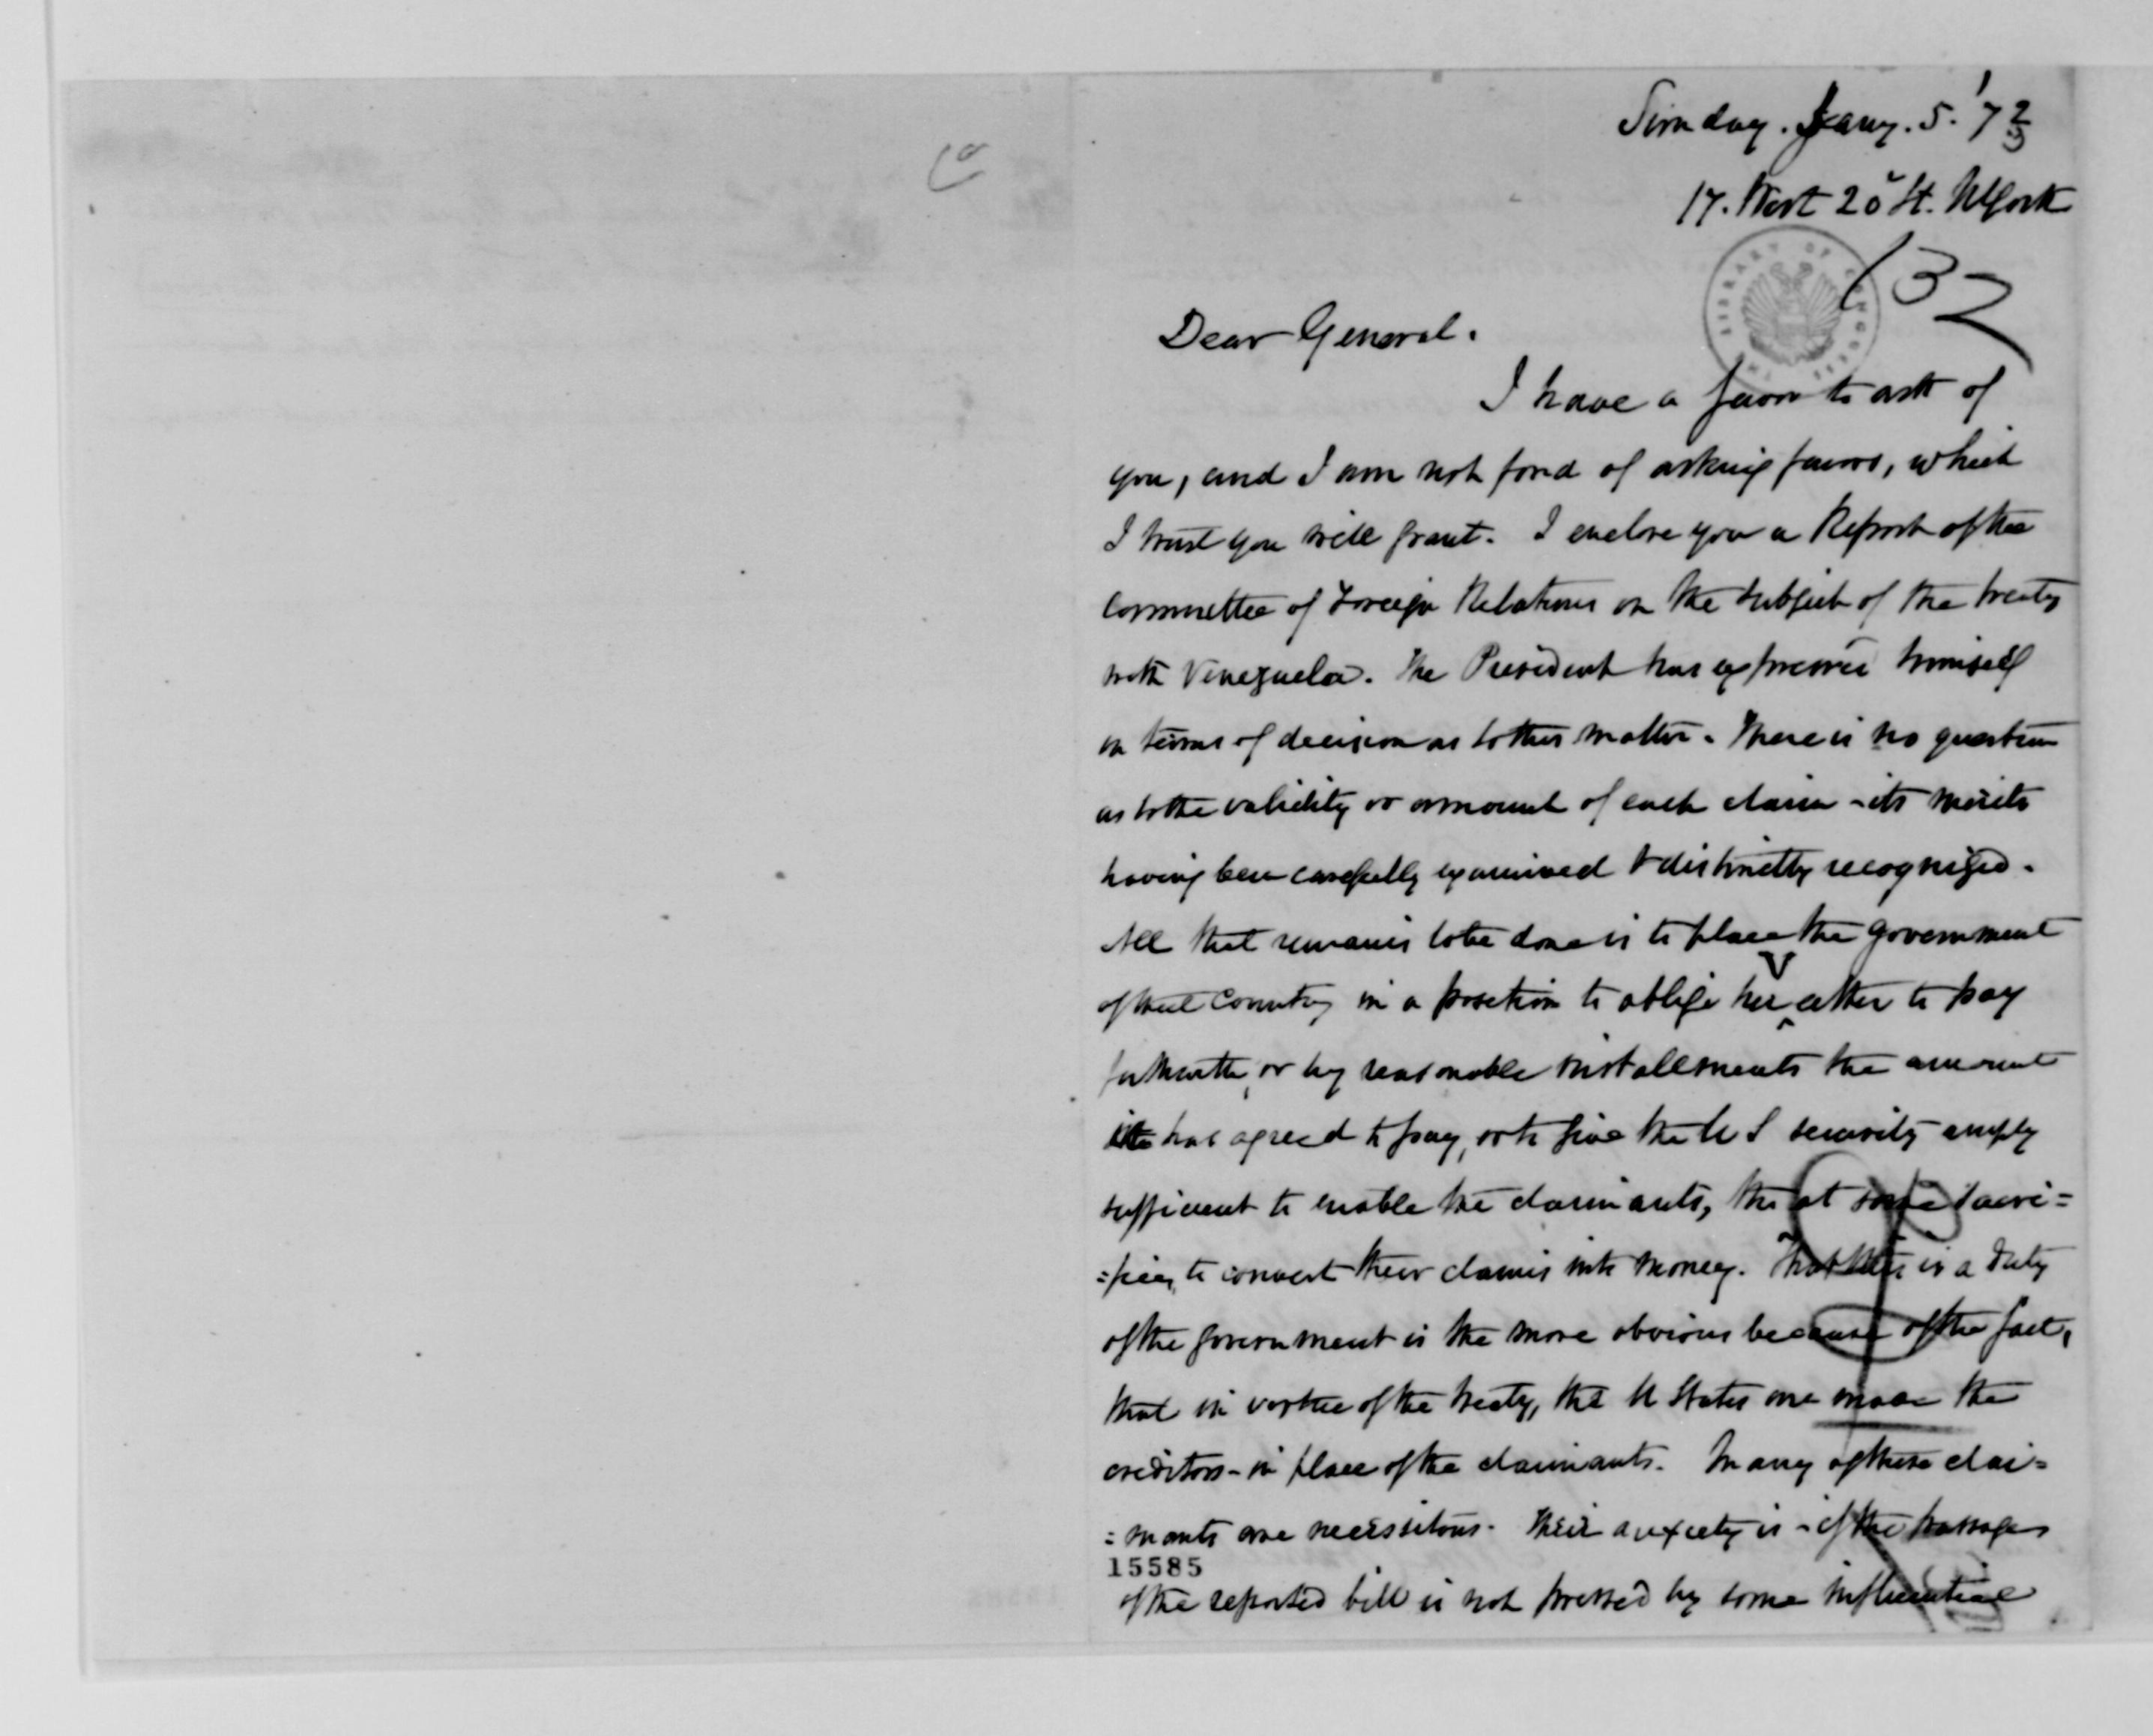 Sunday. Jany. 5. '73
17. West 20 St. NYork
132
Dear General.
I have a favor to ask of
you, and I am not fond of asking favors, which
I trust you will grant. I enclose you a Report of the
Committee of Foreign Relations on the subject of the treaty
with Venezuela. The President has expressed himself
in terms of decision as to this matter. There is no question
as to the validity or amount of each claim - its merits
having been carefully examined & distinctly recognized.
All that remains to be done is to place the government
of that Country in a position to oblige her either to pay
forthwith, or by reasonable installments the amount
has agreed to pay, or to give the U S security amply
sufficient to enable the claimants, tho at some sacri=
=fice, to convert their claims into money. That this is a duty
of the government is the more obvious because of the fact,
that in virtue of the treaty, the U States are made the
creditors - in place of the claimants. Many of these clai=
=mants are necessitous. Their anxiety is - if the passage
15585
of the reported bill is not pressed by some influential